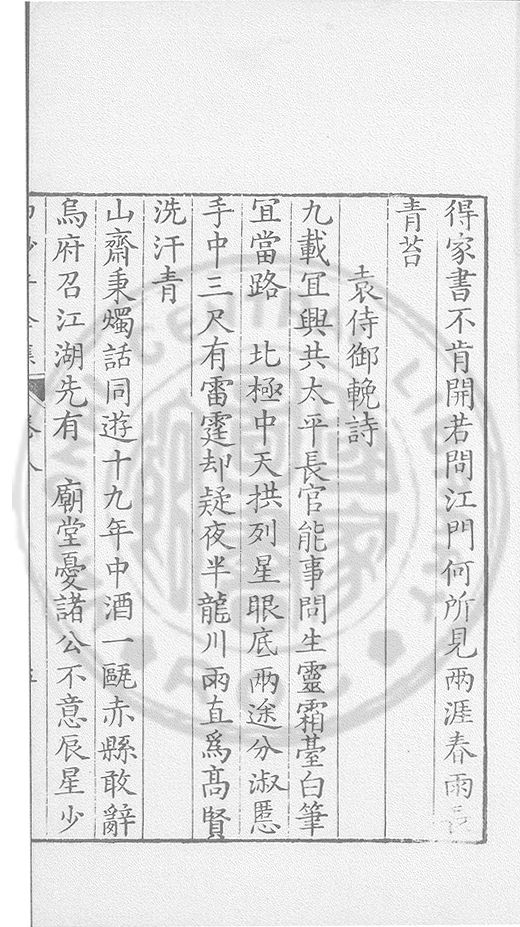 得家書不肯開若問江門何所見兩涯春雨
青苔
袁侍御輓詩
九載宜興共太平長官能事問生靈霜臺白筆
宜當路　北極中天拱列星眼底兩途分淑慝
手中三尺有雷霆却疑夜半龍川雨直爲高賢
洗汗青
山齋秉燭話同遊十九年中酒一甌赤縣敢辭
烏府召江湖先有　廟堂憂諸公不意辰星少
卷八